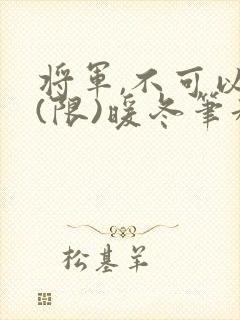 將軍,不可以
(限)暖冬筆
松基羊